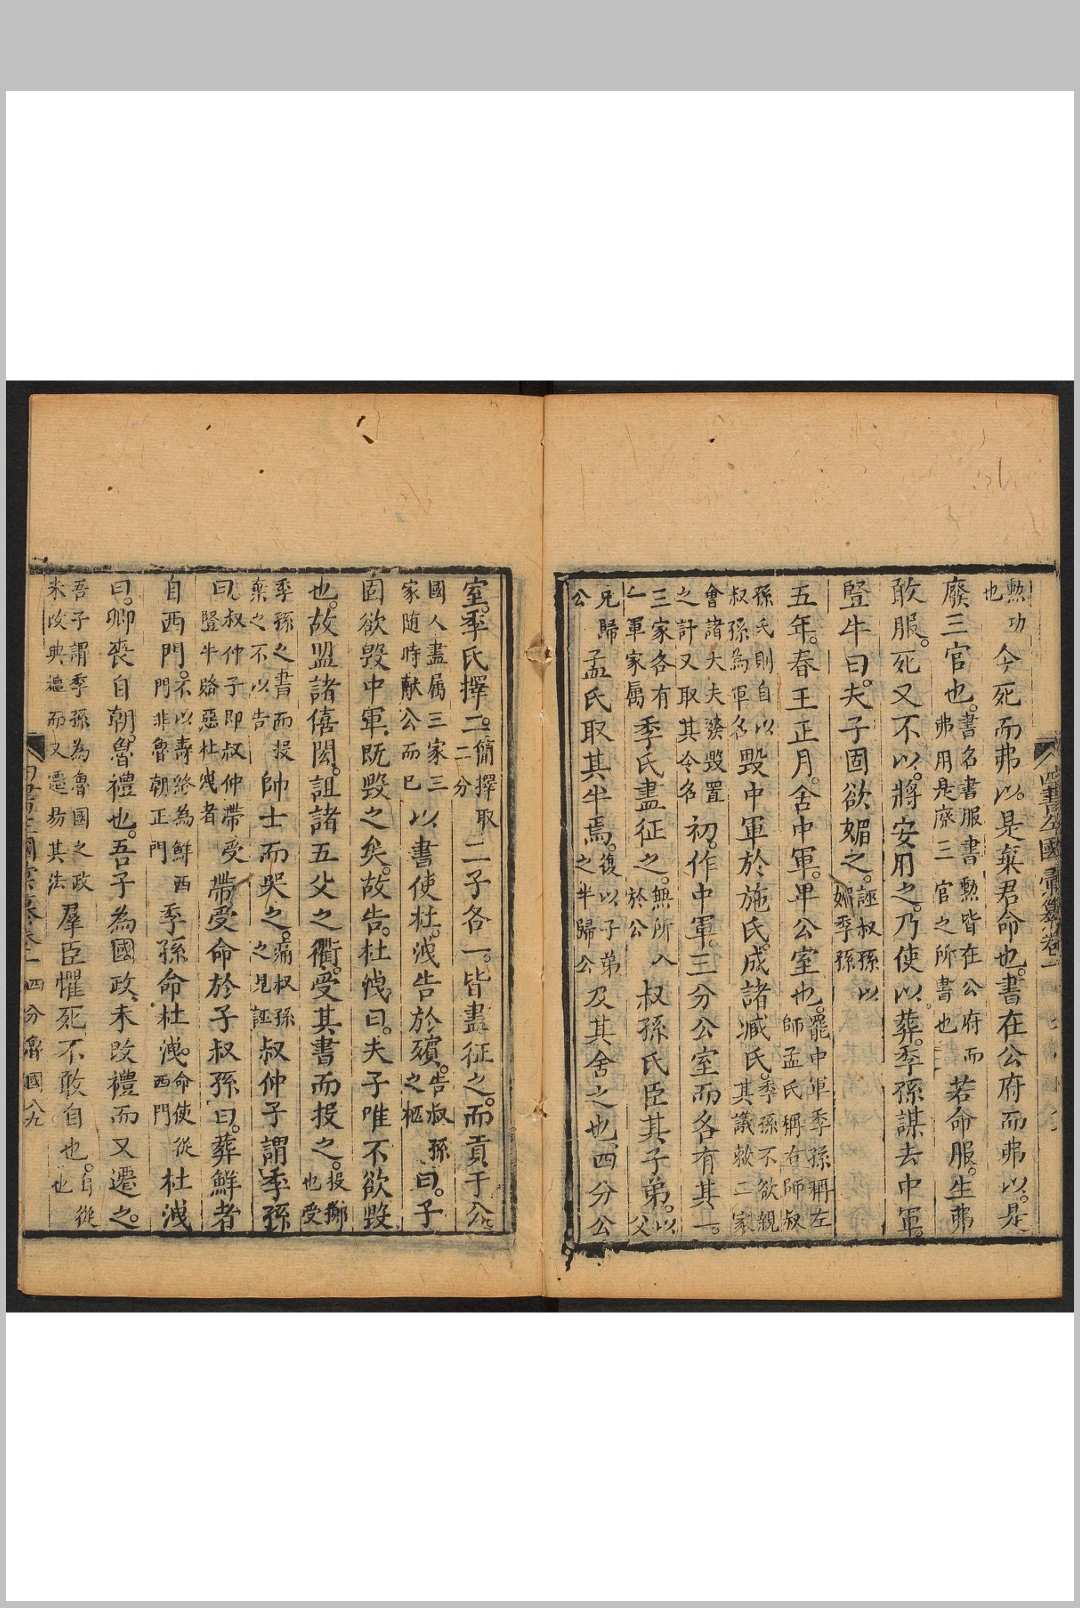 勲功也今死而弗以。是棄君命也。書在公府而弗以。是
廢三官也。書名書服書勲皆在公府而弗用是廢三官之所書也若命服。生弗
敢服。死又不以。將安用之。乃使以葬。季孫謀去中軍。
豎牛曰。夫子固欲媚之。誣叔孫以媚季孫
五年。春王正月。舍中軍。卑公室也。罷中軍季孫稱左師孟氏稱右師叔
孫氏則自以叔孫為軍名毀中軍於施氏。成諸臧氏。季孫不欲親其議敕二家
會諸大夫發毀置之計又取其令名初。作中軍。三分公室而各有其一。
三家各有一軍家属季氏盡征之。無所入於公叔孫氏臣其子弟。以父
兄歸公孟氏取其半焉。復以子弟之半歸公及其舍之也四分公
室。季氏擇二。簡擇取二分二子各一。皆盡征之。而貢于公。
國人盡属三家三家随時献公而已以書使杜。洩告於殯。告叔孫之柩曰。子
固欲毀中軍。既毀之矣。故告。杜洩曰。夫子唯不欲毀
也。故盟諸僖閎。詛諸五父之衢。受其書而投之。投擲也受
季孫之書而投棄之不以告帥士而哭之。痛叔孫之見誣叔仲子謂季孫
曰。叔仲子即叔仲帶豎牛賂惡杜洩者帶受命於子叔孫。曰。葬鮮者
自西門。不以壽終為鮮西門非魯朝正門季孫命杜洩。命使從西門杜洩
曰。卿喪自朝。魯禮也。吾子為國政。未改禮而又遷之。
吾子謂季孫為魯國之政未改典禮而又遷易其法羣臣懼死不敢自也。自從也